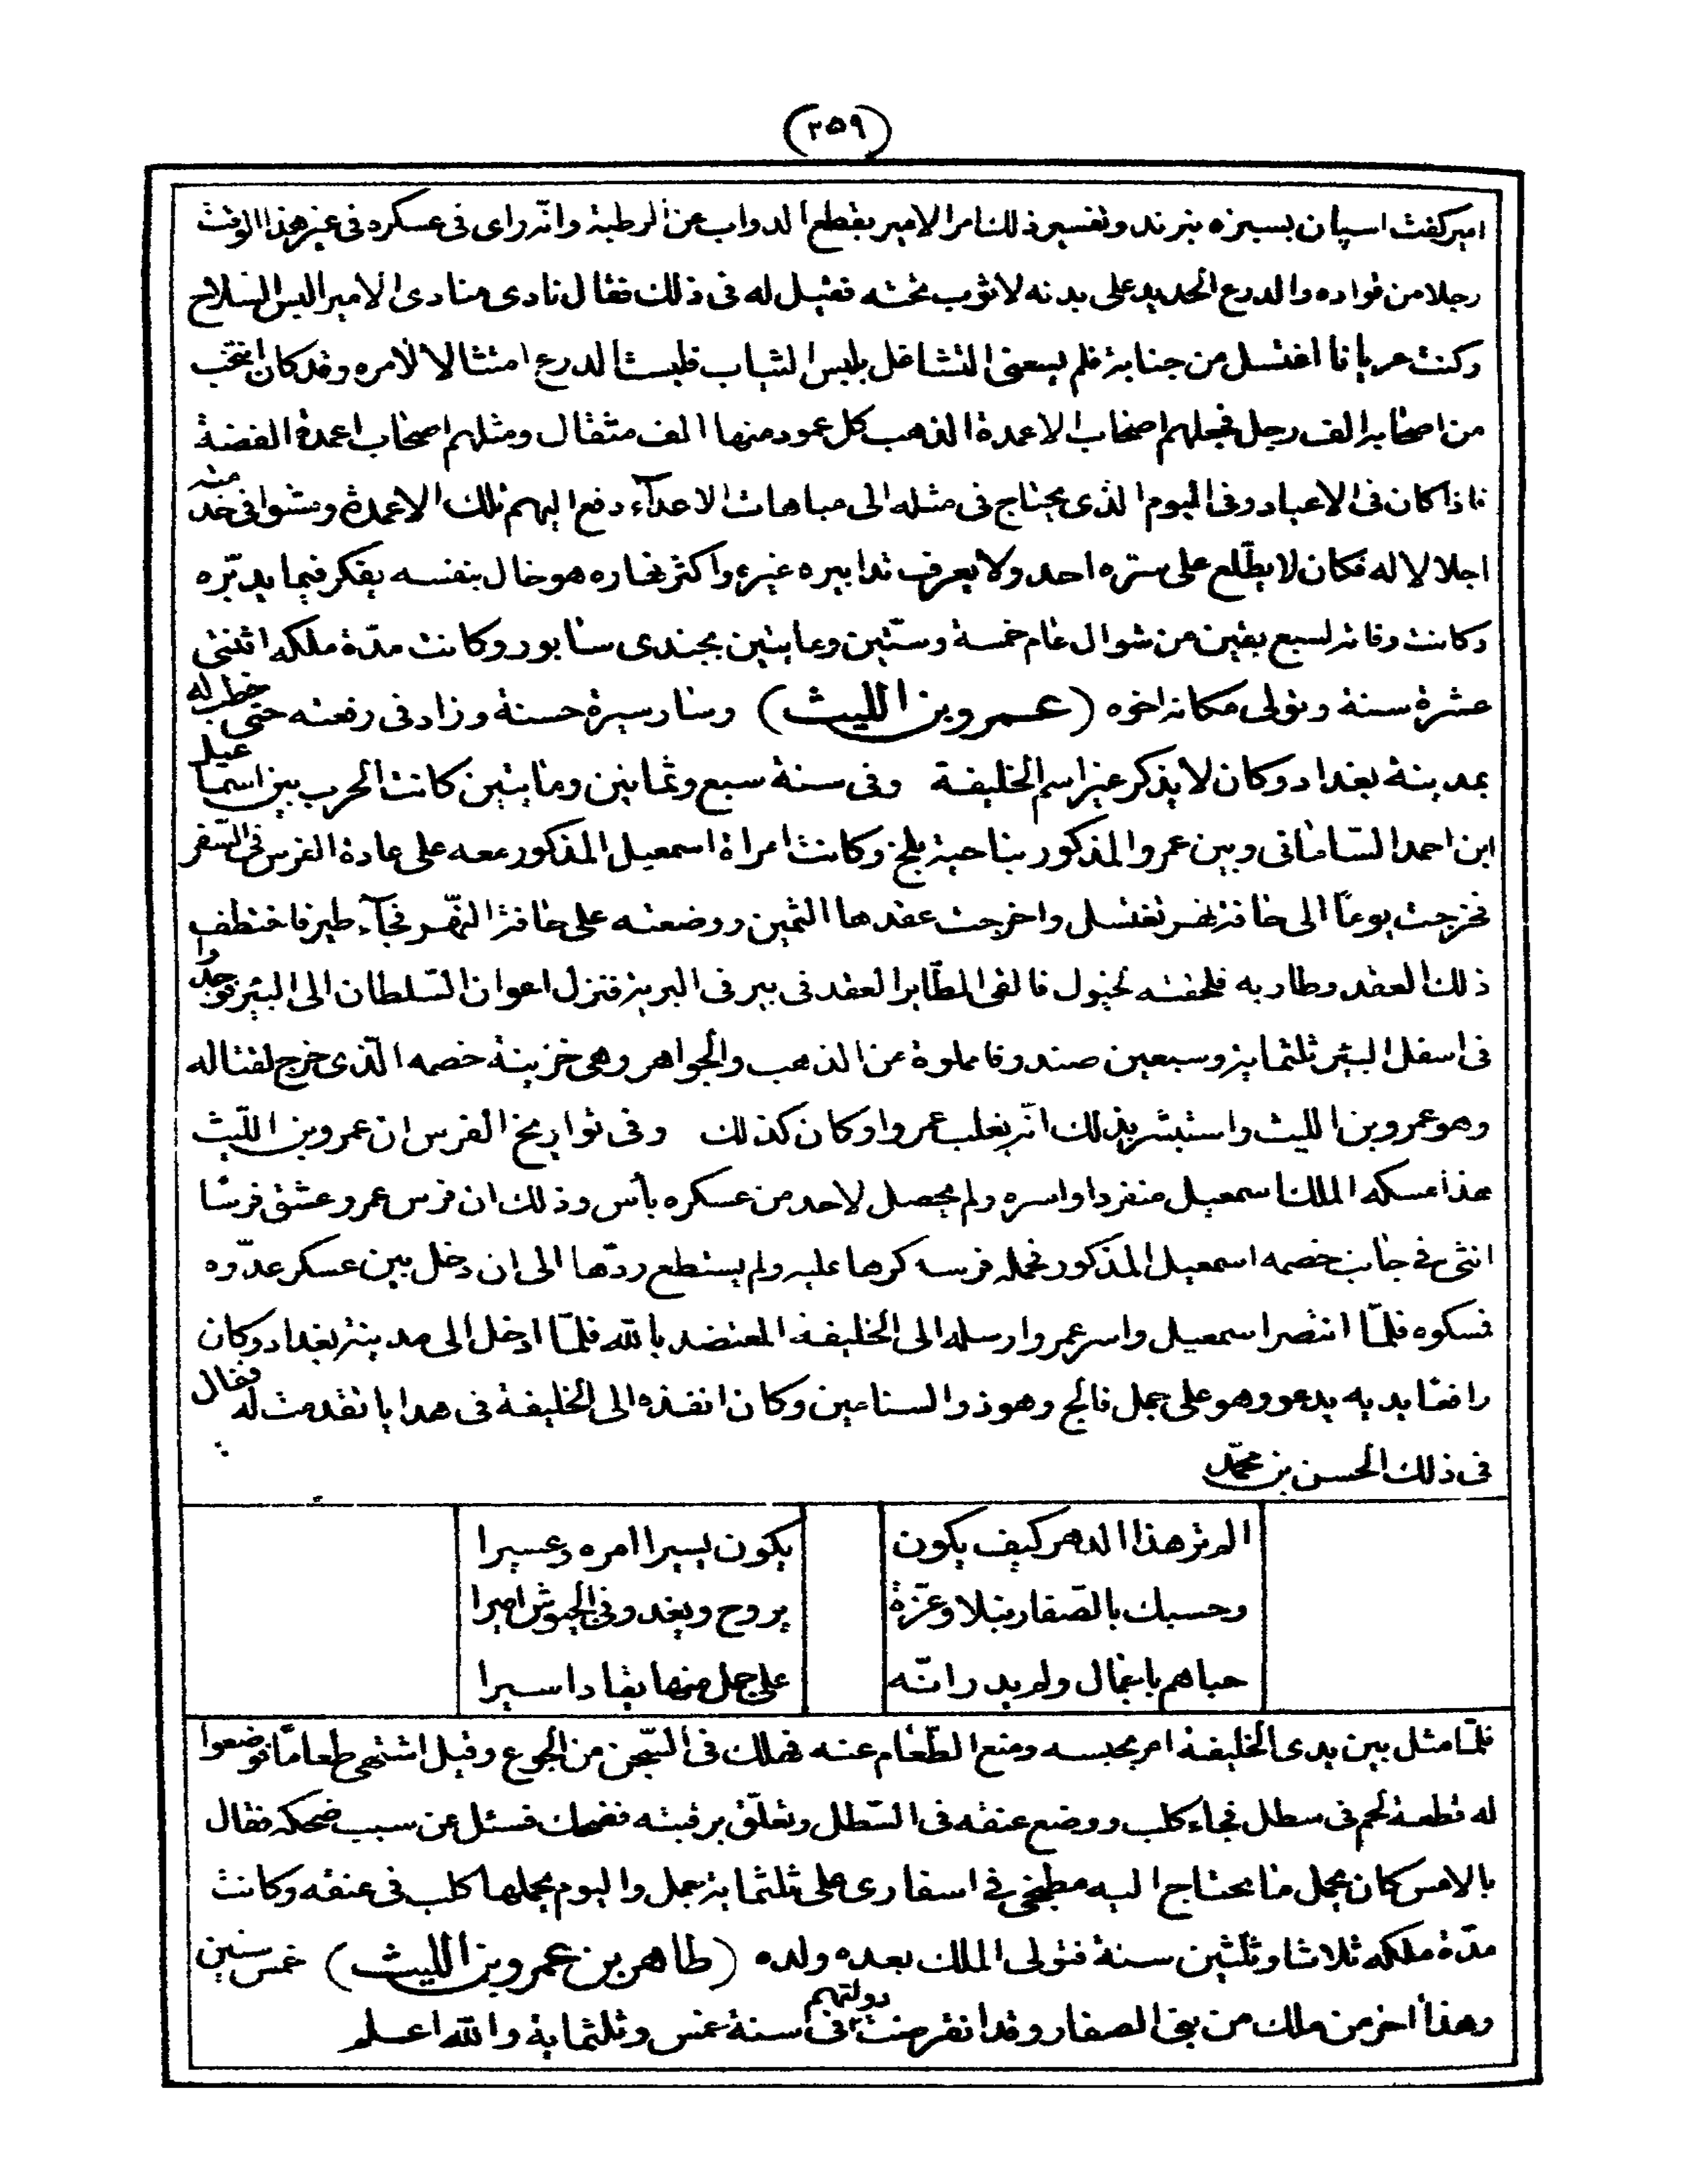 (٣٥٩)
امير كفت اسپان بسبزه نبرند وتفسير ذلك نامر الامير بقطع الدواب عن الرطبة وانه راى فى عسكره فى غير هذا الوقت
رجلا من قواده والدرع الحديد على بدنه لا ثوب تحته فقيل له فى ذلك فقال نادى منادى الامير البس السلاح
وكنت عريانا اغتسل من جنابة فلم يسعنى التشاغل بلبس الثياب فلبست الدرع امتثالا لامره وقد كان انتخب
من اصحابه الف رجل فجعلهم اصحاب الاعمدة الذهب كل عمود منها الف مثقال ومثلهم اصحاب اعمدة الفضة
فاذا كان فى الاعياد وفى اليوم الذى يحتاج فى مثله الى مباهات الاعدآء دفع اليهم تلك الاعمدة ومشوا فى خدمته
اجلالا له فكان لا يطّلع على سرّه احد ولا يعرف تدابيره غيره واكثر نهاره هو خال بنفسه يفكر فيما يدبّره
وكانت وفاته لسبع بقين من شوال عام خمسة وستّين وماىتين بجندى سابور وكانت مدّة ملكه اثنتى
عشرة سنة وتولى مكانه اخوه (عمرو بن الليث) وسار سيرة حسنة وزاد فى رفعته حتى خطب له
بمدينة بغداد وكان لا يذكر غير اسم الخليفة وفى سنة سبع وثمانين ومايتين كانت الحرب بين اسماعيل
ابن احمد السّامانى وبين عمرو المذكور بناحية بلخ وكانت امراة اسمعيل المذكور معه على عادة الفرس فى السّفر
فخرجت يوماً الى حافة نهر تغتسل واخرجت عقدها الثمين ووضعته على حافة النّهر فجآء طير فاختطف
ذلك العقد وطار به فلحقته لخيول فالقى الطّاير العقد فى بير فى البرية فنزل اعوان السّلطان الى البئر فوجدوا
فى اسفل البئر ثلثماية وسبعين صندوقا مملوة من الذهب والجواهر وهى خزينة خصمه الّذى خرج لقتاله
وهو عمرو بن الليث واستبشر بذلك انّه يغلب عمروا وكان كذلك وفى تواريخ الفرس ان عمرو بن اللّيث
هذا مسكه الملك اسمعيل منفردا واسره ولم يحصل لاحد من عسكره بأس وذلك ان فرس عمرو عشق فرسًا
انثى فى جانب خصمه اسمعيل المذكور فحمله فرسه كرها عليه ولم يستطع ردّها الى ان دخل بين عسكر عدّوه
فمسكوه فلمّا انتصر اسمعيل واسر عمروا ارسله الى الخليفة المعتضد بالله فلمّا ادخل الى مدينة بغداد وكان
رافعًا يديه يدعو وهو على جمل فالج وهو ذو السنامين وكان انفذه الى الخليفة فى هدايا تقدمت له فقال
فى ذلك الحسن بن محمّد
الم تر هذا الدهر كيف يكون يكون يسيرا امره وعسيرا
وحسبك بالصّفار نبلا وعزّة يروح ويغدو فى الجيوش اميرا
حباهم باجمال ولم يدر انّه على جمل منها يقاد اسيرا
فلمّا مثل بين يدى الخليفة امر بحبسه ومنع الطّعام عنه فهلك فى السّجن من الجوع وقيل اشتهى طعامًا فوضعوا
له قطعة لحم فى سطل فجاء كلب ووضع عنقه فى السّطل وتعلّق برقبته فضحك فسئل عن سبب ضحكه فقال
بالامس كان يحمل ما يحتاج اليه مطبخى فى اسفارى على ثلثماية جمل واليوم يحملها كلب فى عنقه وكانت
مدّة ملكه ثلاثا وثلثين سنة فتولى الملك بعده ولده (طاهر بن عمرو بن الليث) خمس سنين
وهذا اخر من ملك من بنى الصفار وقد انقرضت دولتهم فى سنة خمس وثلثماية والله اعلم